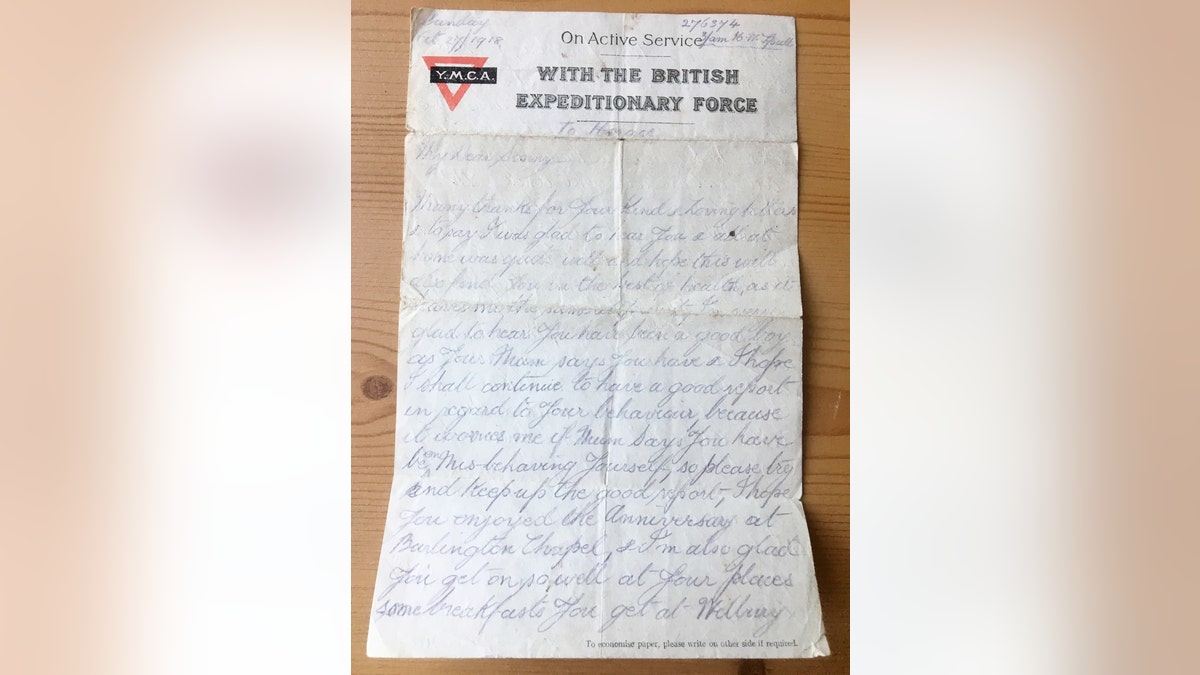 Sunday 276374
Oct 27/1918 On Active Service
Y.M.C.A. WITH THE BRITISH
EXPEDITIONARY FORCE
To Horace
My dear Sonny
Many thanks for Your kind & loving letter
& to say I was glad to hear You & all at
home was quite well and hope this will
also find You in the best of health, as it
leaves me the same
glad to hear You have been a good boy
as Your Mum says You have & I hope
I shall continue to have a good report
in regard to Your behaviour, because
it worries me if Mum says You have
been Mis-behaving Yourself, so please try
and keep up the good report, I hope
You enjoyed the Anniversay at
Burlington Chapel, & I'm also glad
You get on so well at Your places
some breakfasts You get at Wilbury
To economise paper, please write on other side if required.